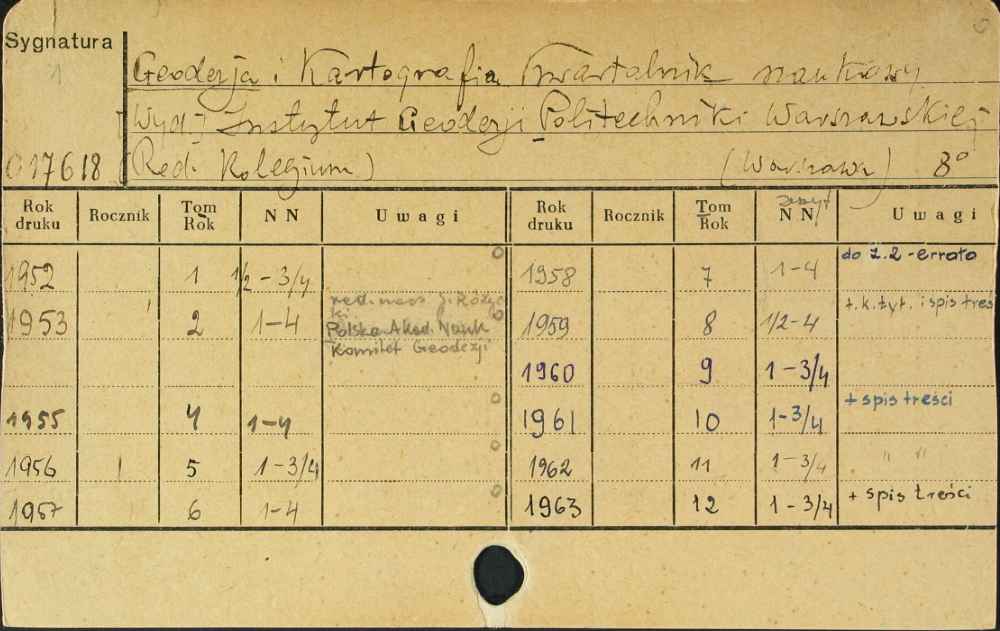 Sygnatura
1
Geodezja i Kartografia Kwartalnik naukowy
[Wyd.] Instytut Geodezji Politechniki Warszawskiej
017618 (Red. Kolegium) (Warszawa) 8°
Rok druku Rocznik Tom Rok NN Uwagi Rok druku Rocznik Tom Rok zeszyt NN Uwagi
1952 1 1/2-3/4 1958 7 1-4 do z.2-errata
1953 2 1-4 red. nacz. J. Różycki. Polska Akad. Nauk Komitet Geodezji 1959 8 1/2-4 + k. tyt. i spis treś
1960 9 1-3/4
1955 4 1-4 1961 10 1-3/4 + spis treści
1956 5 1-3/4 1962 11 1-3/4 " "
1957 6 1-4 1963 12 1-3/4 + spis treści